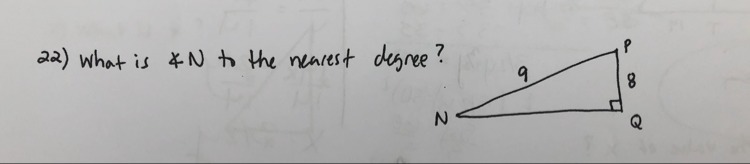 22) What is ∡N to the nearest degree?
P
9
8
N
Q